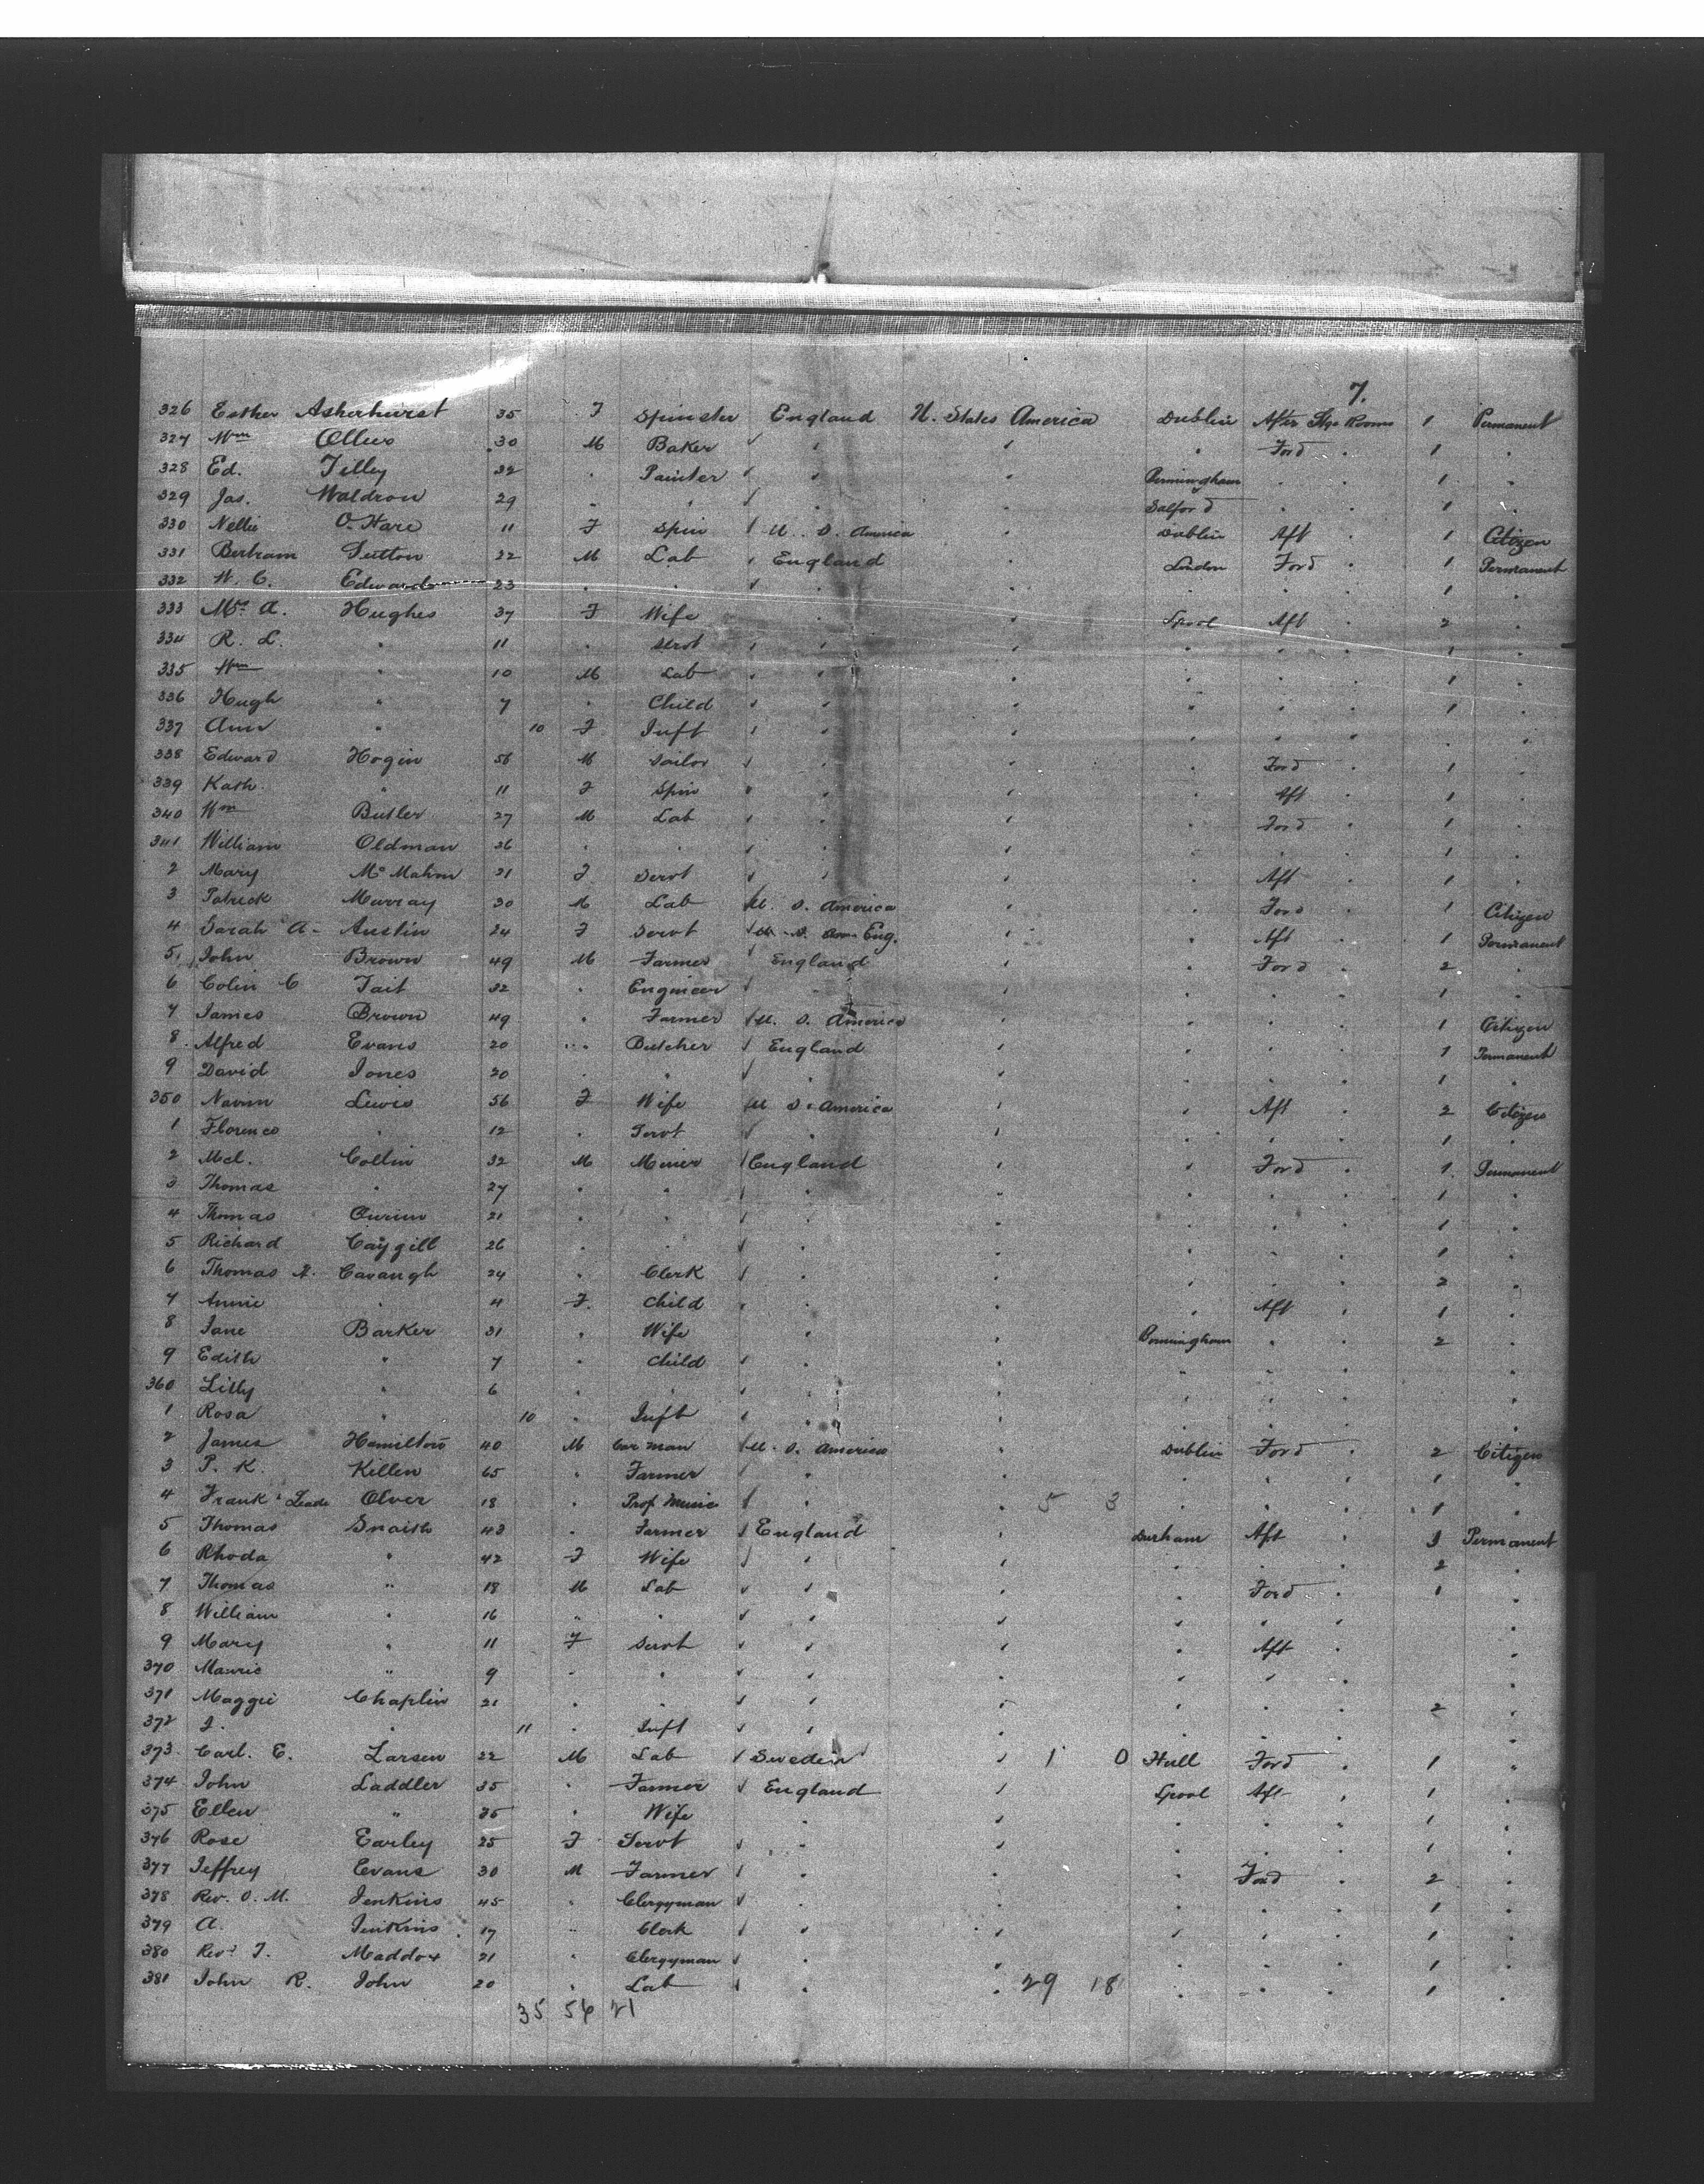 7.
326 Esther Asherhurst 35 F Spinster England U. States America Dublin After Stge Rooms 1 Permanent
327 Wm 30 M Baker Ford 1
328 Ed. Tilley 32 Painter Birmingham 1
329 Jas. Waldron 29 Salford 1
330 Nellie O'Hare 11 F Spin U. S. America Dublin Aft 1 Citizen
331 Bertram Sutton 22 M Lab England London Ford 1 Permanent
332 W. C. Edwards 23 1
333 Mrs A. Hughes 37 F Wife Lpool Aft 2
334 R. L. " 11 Servt 1
335 Wm " 10 M Lab 1
336 Hugh " 7 Child 1
337 Ann " 10 F Inft
338 Edward Hogin 56 M Sailor Ford 1
339 Kath. " 11 F Spin Aft 1
340 Wm Butler 27 M Lab Ford 1
341 William Oldman 26 1
2 Mary Mc Mahon 21 F Servt Aft 1
3 Patrick Murray 30 M Lab U. S. America Ford 1 Citizen
4 Sarah A- Austin 24 F Servt Eng. Aft 1 Permanent
5. John Brown 49 M Farmer England Ford 2
6 Colin C Tait 32 Engineer 1
7 James Brown 49 Farmer U. S. America 1 Citizen
8. Alfred Evans 20 Butcher England 1 Permanent
9 David Jones 20 1
350 Lewis 56 F Wife U S. America Aft 2 Citizen
1 Florence " 12 Servt 1
2 Mcl. Collin 32 M Miner England Ford 1 Permanent
3 Thomas " 27 1
4 Thomas 21 1
5 Richard Caygill 26 1
6 Thomas Cavaugh 24 Clerk 2
7 Annie " 4 F. Child Aft 1
8 Jane Barker 31 Wife Birmingham 2
9 Edith " 7 Child
360 Lilly " 6
1 Rosa " 10 Inft
2 James Hamilton 40 M Car man U. S. America Dublin Ford 2 Citizen
3 P. K. Killen 65 Farmer 1
4 Frank Olver 18 Prof Music 5 3 1
5 Thomas Snaith 43 Farmer England Durham Aft 3 Permanent
6 Rhoda " 42 F Wife 2
7 Thomas " 18 M Lab Ford 1
8 William " 16
9 Mary " 11 F Servt Aft
370 " 9
371 Maggie Chaplin 21 2
372 J. " 11 Inft
373. Carl. E. Larsen 22 M Lab Sweden 1 0 Hull Ford 1
374 John Laddler 35 Farmer England Lpool Aft 1
375 Ellen " 35 Wife 1
376 Rose Earley 25 F Servt 1
377 Jeffrey Evans 30 M Farmer Ford 2
378 Rev. O. M. Jenkins 45 Clergyman 1
379 A. Jenkins 17 Clerk 1
380 Revd J. Maddox 21 Clergyman 1
381 John R. John 20 Lab 29 18 1
35 56 21